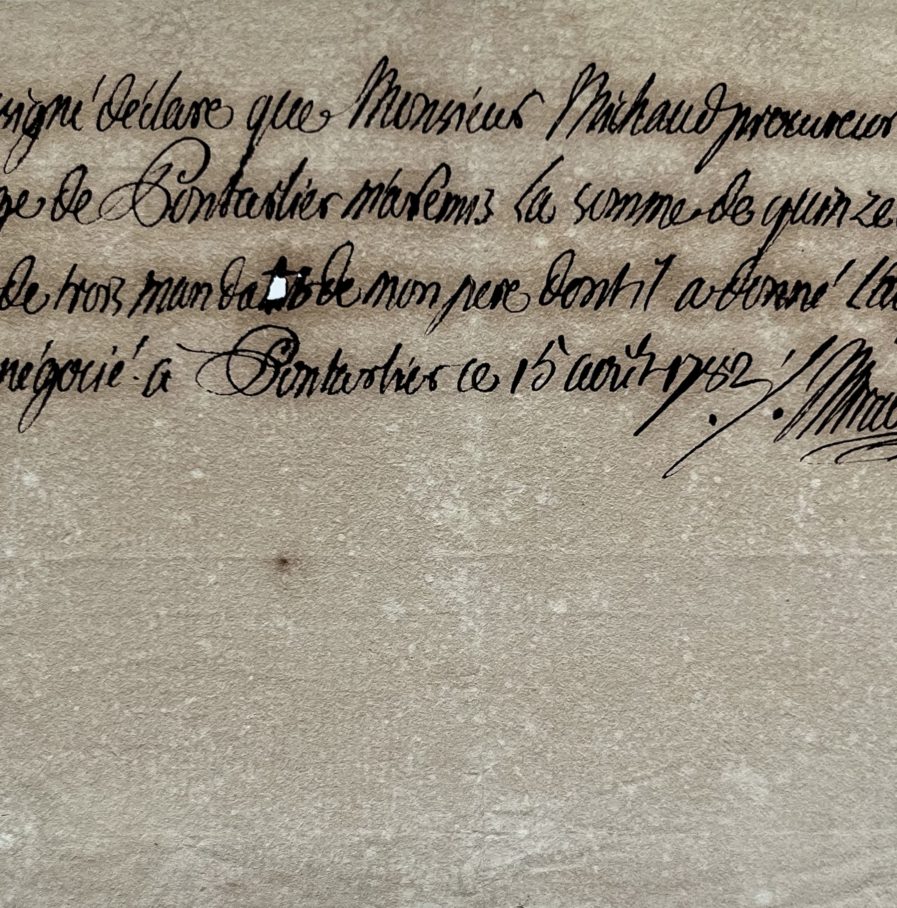 signé déclare que Monsieur Michaud procureur
de Pontarlier m'a remis la somme de quinze
de trois mandats de mon pere dont il a donné
négocié. à Pontarlier ce 15 août 1782